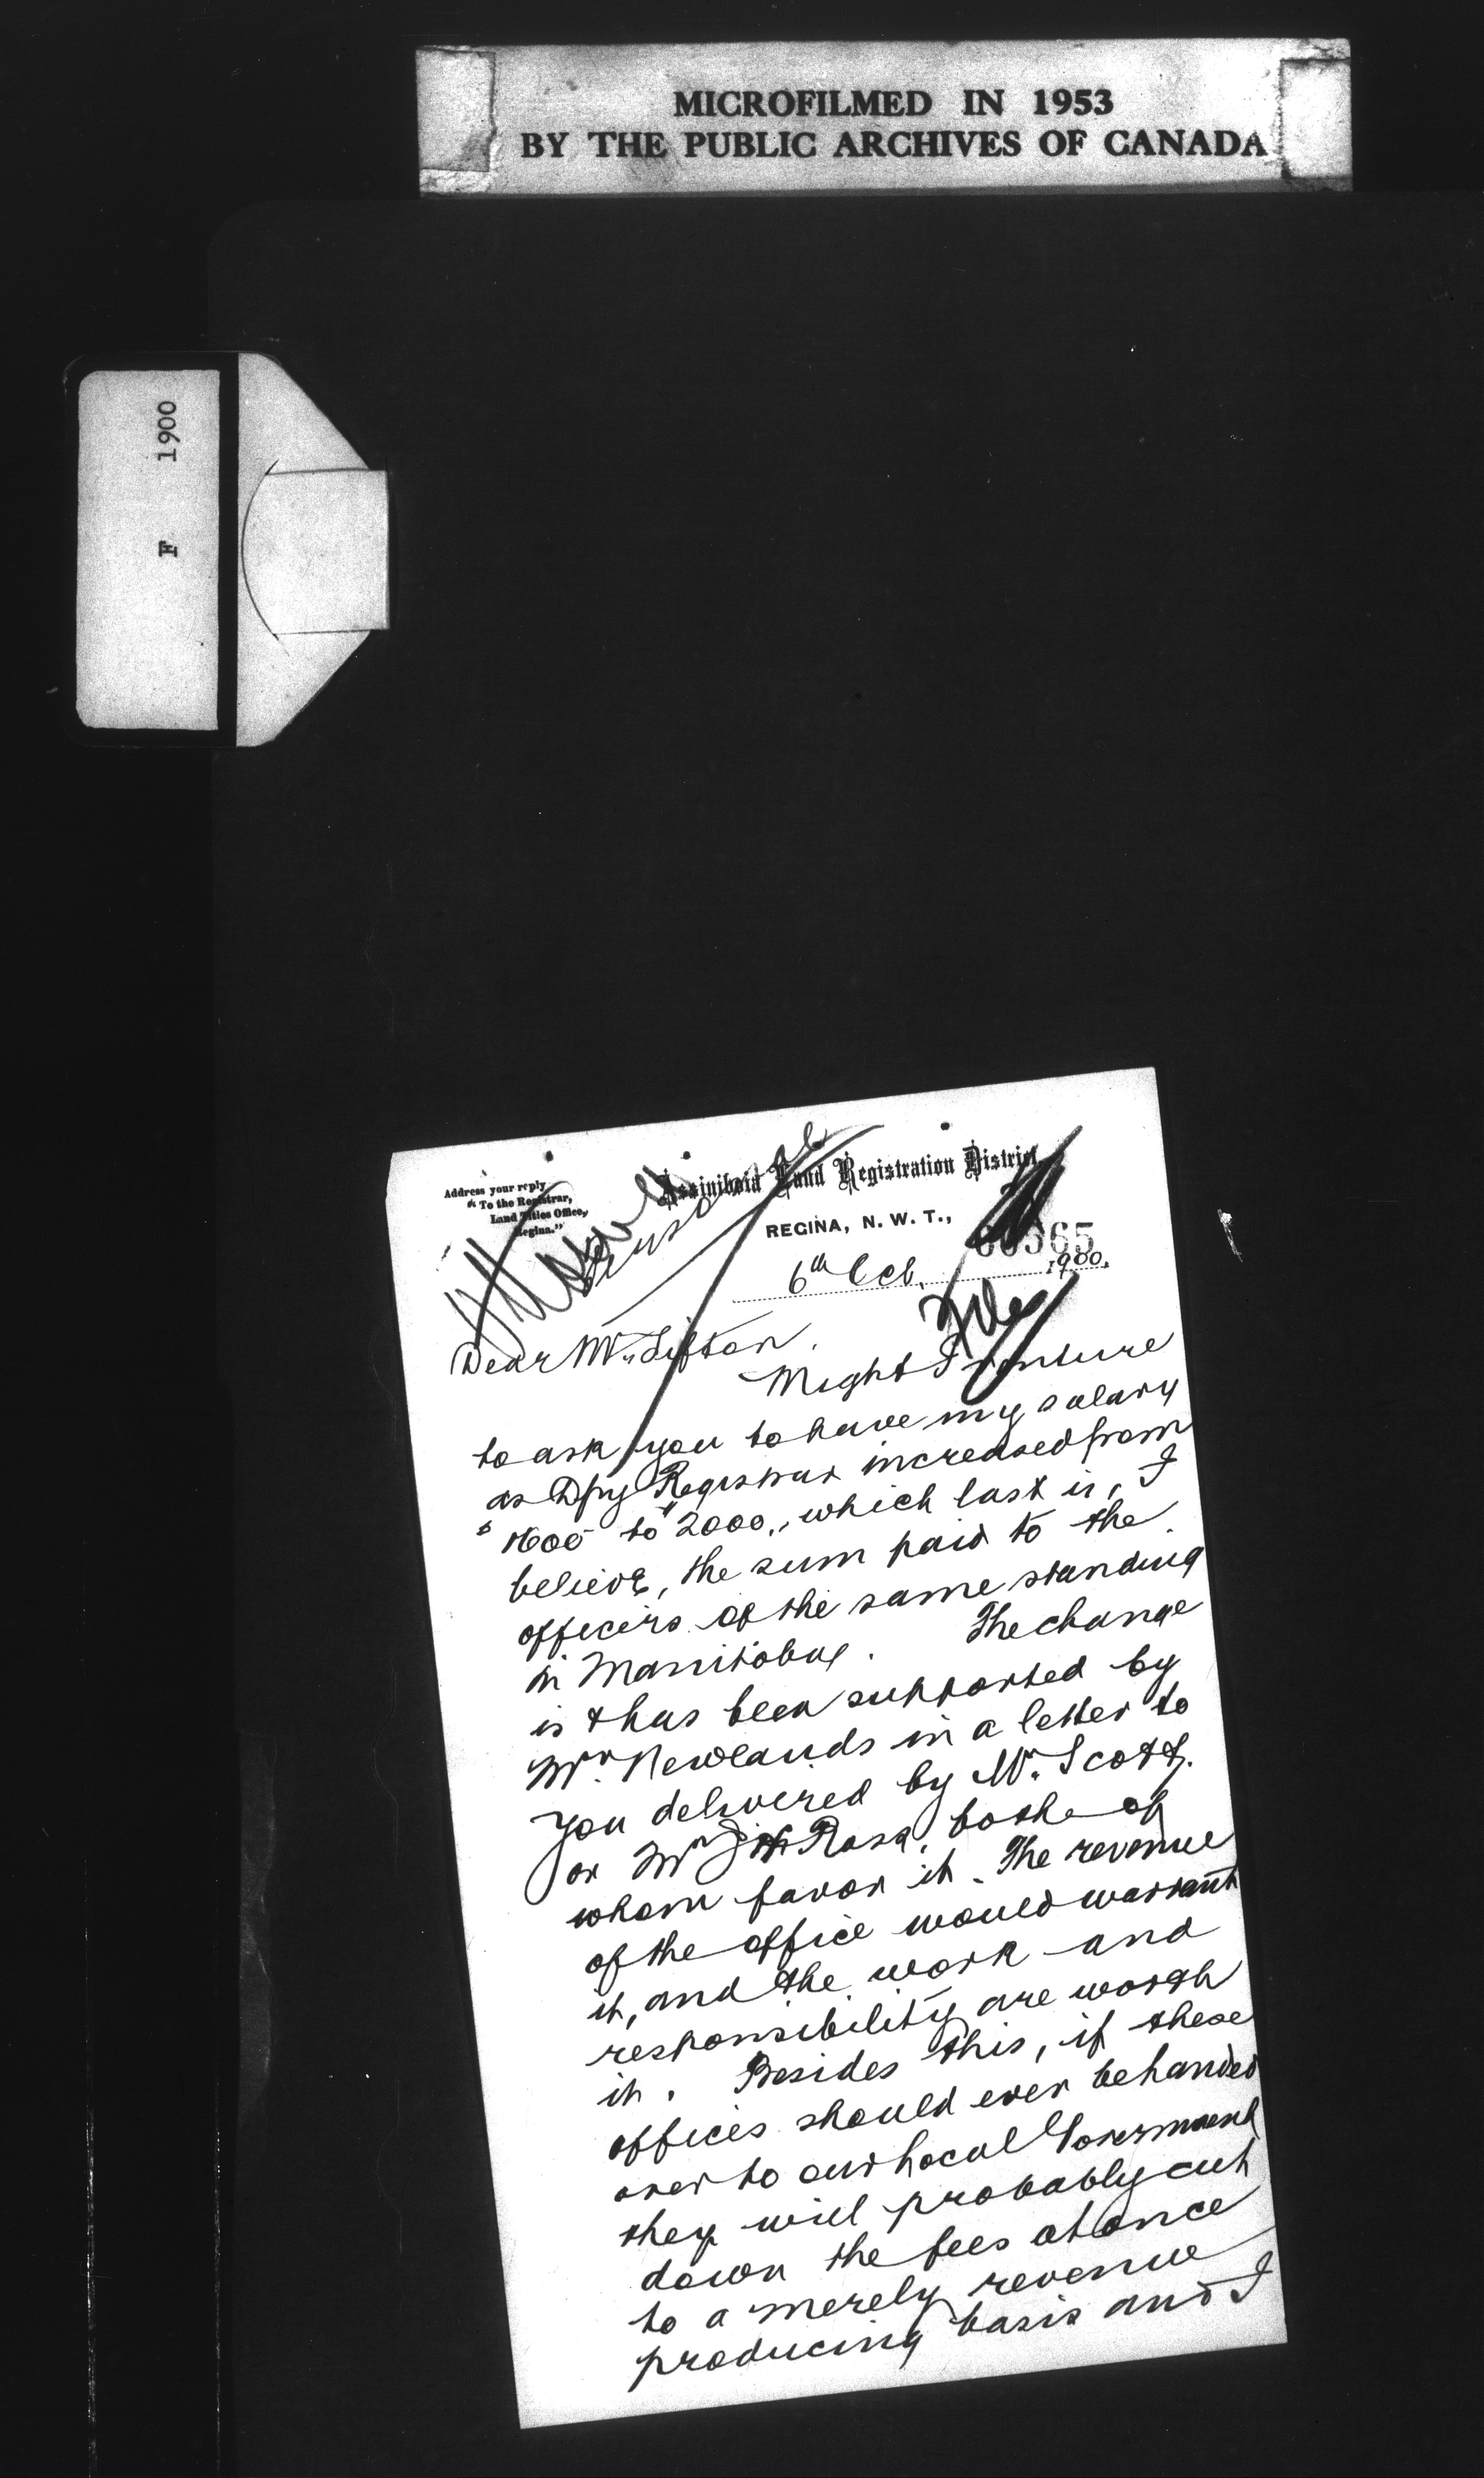 MICROFILMED IN 1953
BY THE PUBLIC ARCHIVES OF CANADA
F 1900
Address your reply
"To the Registrar,
Land Titles Office,
Regina."
Assiniboia Land Registration District,
REGINA, N. W. T.,
6th Feb. 1900.
File
Dear Mr. Sifton.
Might I venture
to ask you to have my salary
as Dpy Registrar increased from
$1600 to $2000., which last is, I
believe, the sum paid to the
officers of the same standing
in Manitoba. The change
is & has been supported by
Mr. Newlands in a letter to
you delivered by Mr. Scott.
or Mr J H Ross, bothe of
whom favor it. The revenue
of the office would warrant
it, and the work and
responsibility are worth
it. Besides this, if these
offices should ever be handed
over to our Local Government
they will probably cut
down the fees at once
to a merely revenue
producing basis and I